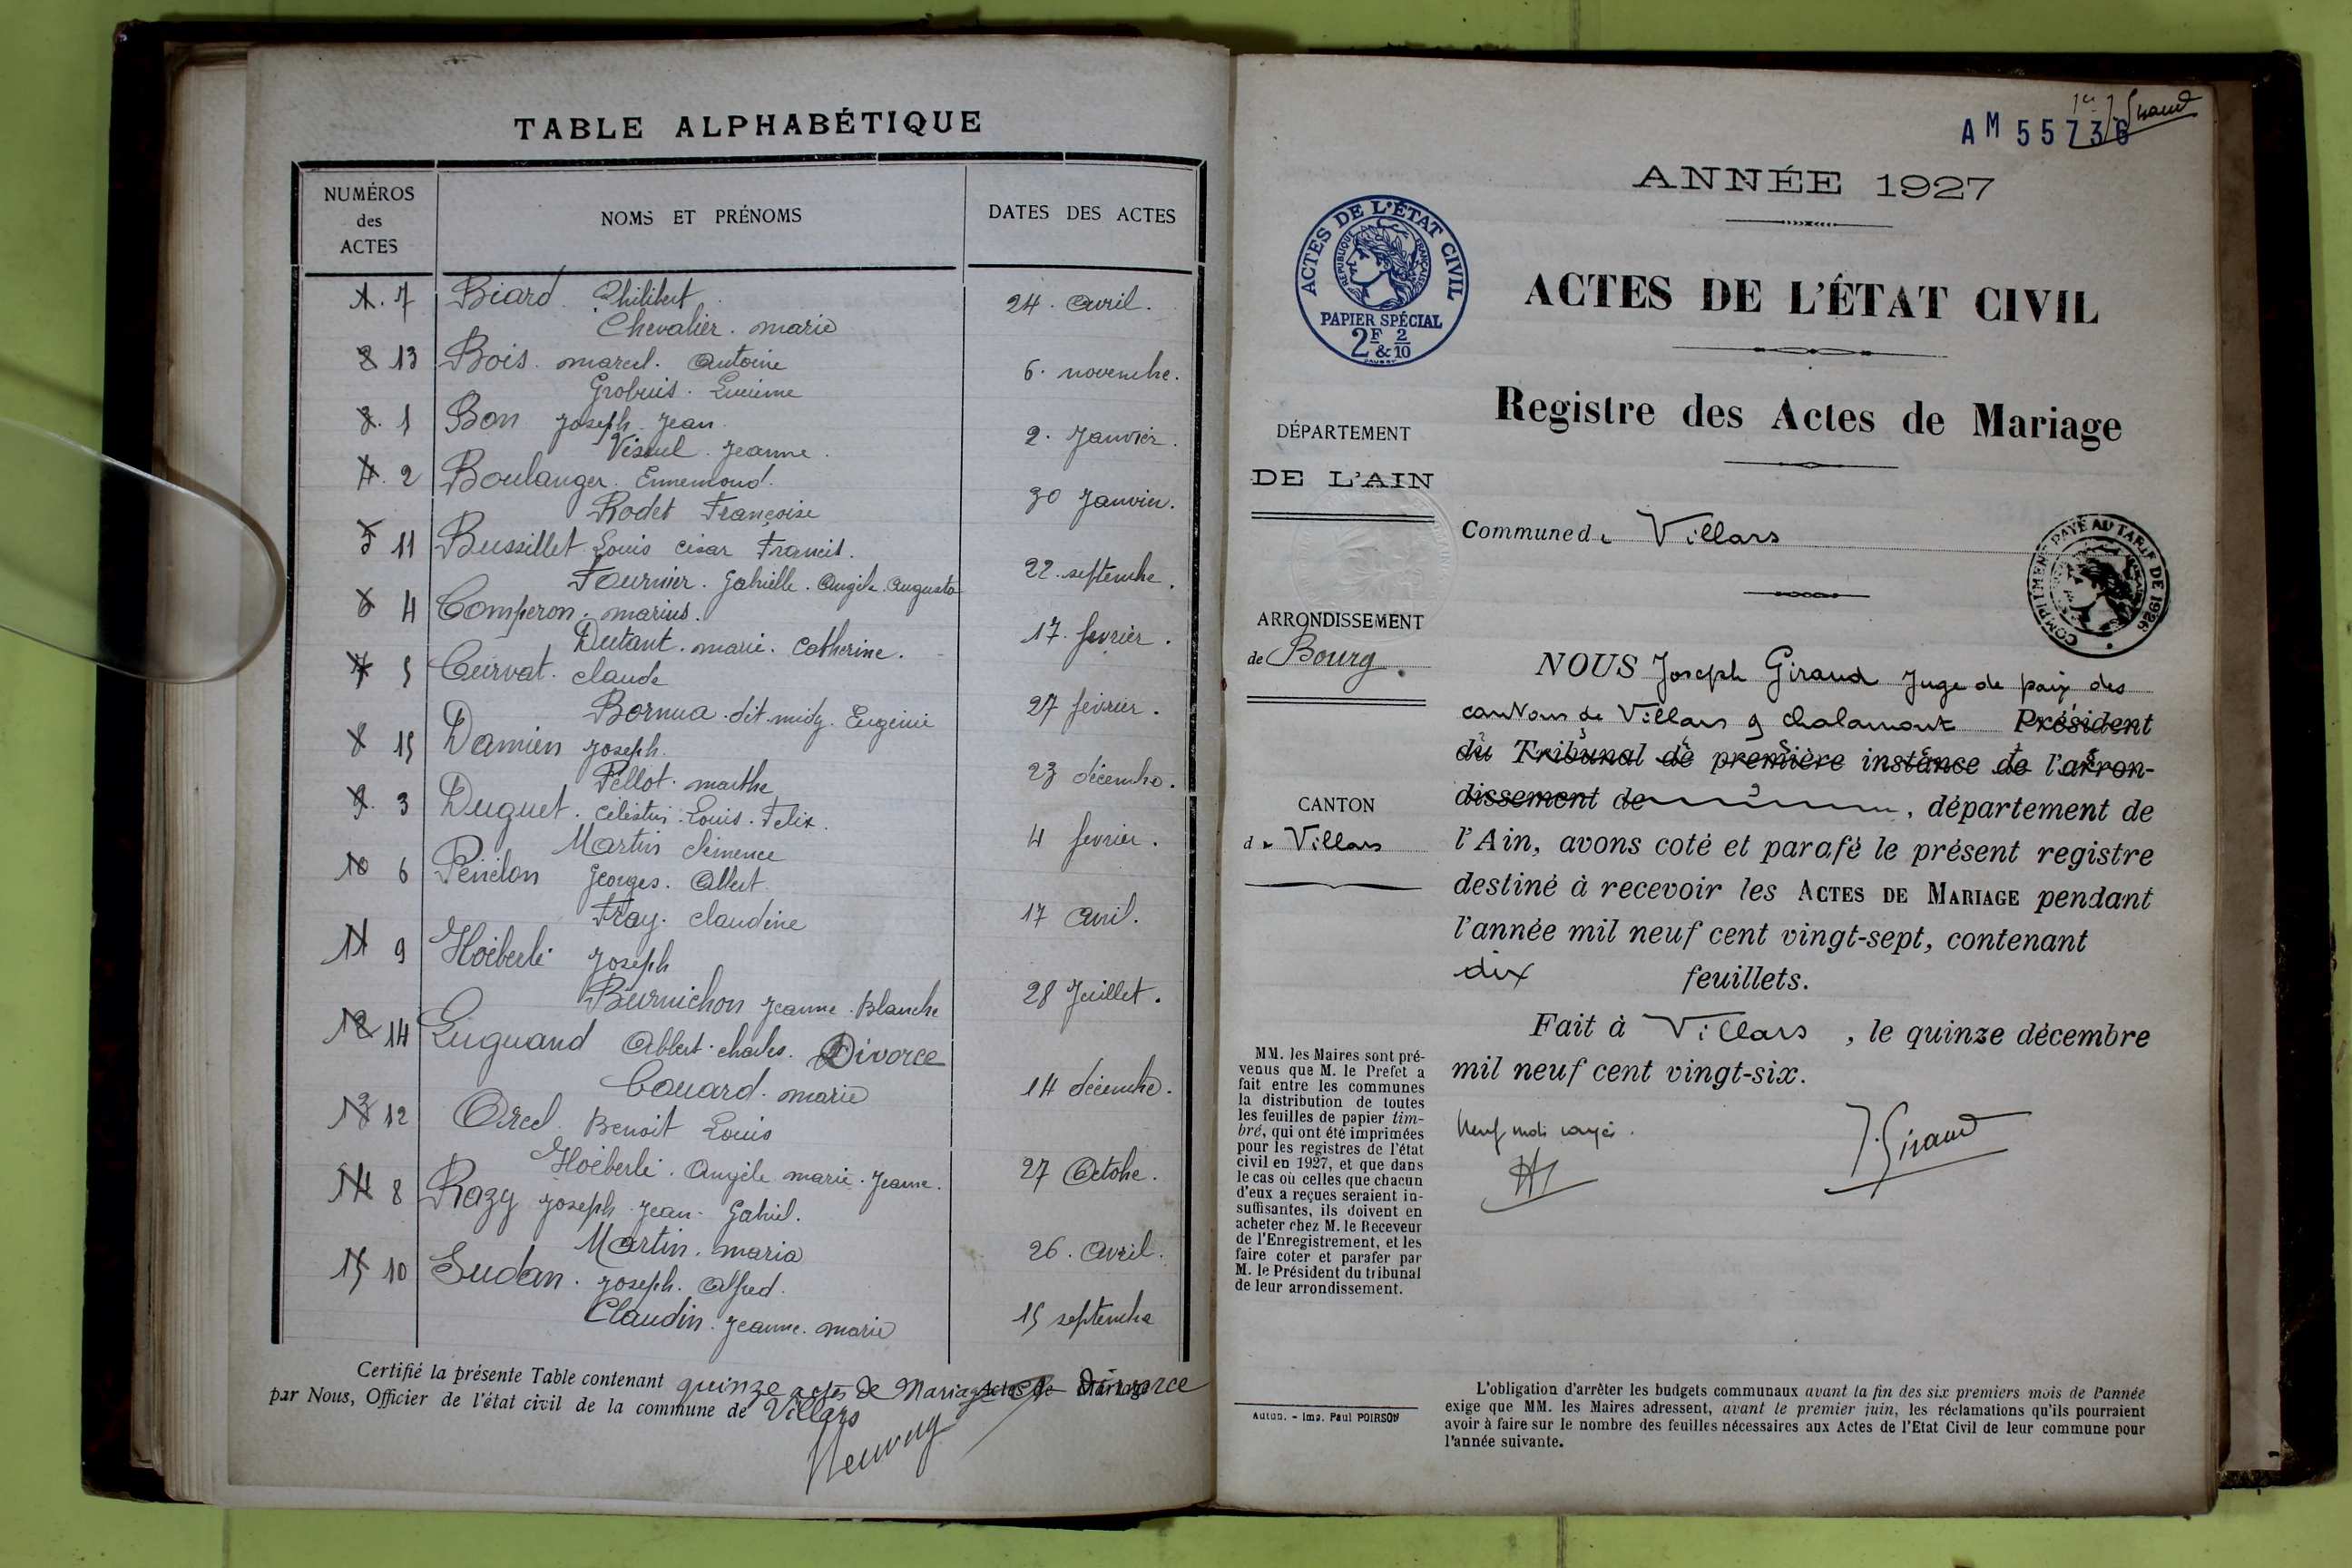 TABLE ALPHABÉTIQUE
NUMÉROS
des
ACTES
NOMS ET PRÉNOMS
DATES DES ACTES
1. 7 Biard. Philibert 24. avril.
Chevalier. marie
2 13 Bois. marcel. Antoine 6. novembre.
Grobuis. Lucienne
3. 1 Bon Joseph Jean. 2. Janvier.
Jeanne.
4. 2 Boulanger. Ennemond. 30 Janvier.
Rodet Françoise
5 11 Bussillet Louis César Francis. 22. septembre.
Fournier. Gabrielle. Angèle. Augusta
6 4 Comperon. marius. 17. février.
Dutant. marie. Catherine.
7 5 Curvat. claude 27 février.
Eugénie
8 15 Damien Joseph. 23 décembre.
Pellot. marthe
9. 3 Duguet. Célestin. Louis. Félix. 4 février.
Martin clémence
10 6 Georges. Albert. 17 avril.
Fray. claudine
11 9 Hoëberlé Joseph 28 Juillet.
Burnichon Jeanne. Blanche
12 14 Luguand Albert. charles. Divorce 14 décembre.
Couard. marie
13 12 Orcel. Benoit Louis 27 Octobre.
Hoëberlé. Angèle marie. Jeanne.
14 8 Razy Joseph. Jean. Gabriel. 26. avril.
Martin. maria
15 10 Sudan. Joseph. Alfred. 15 septembre
Claudin. Jeanne. marie
Certifié la présente Table contenant quinze actes de Mariage et divorce
par Nous, Officier de l'état civil de la commune de Villars
AM 55736
J. Giraud
ANNÉE 1927
ACTES DE L'ÉTAT CIVIL
RÉPUBLIQUE FRANÇAISE
PAPIER SPÉCIAL
2F & 2/10
ACTES DE L'ÉTAT CIVIL
Registre des Actes de Mariage
DÉPARTEMENT
DE L'AIN
Commune de Villars
COMPLIMENT PAYÉ AU TARIF DE 1926
ARRONDISSEMENT
de Bourg.
CANTON
de Villars
NOUS Joseph Giraud Juge de paix des
cantons de Villars & Chalamont Président
du Tribunal de première instance de l'arron-
dissement de , département de
l'Ain, avons coté et parafé le présent registre
destiné à recevoir les ACTES DE MARIAGE pendant
l'année mil neuf cent vingt-sept, contenant
dix feuillets.
Fait à Villars, le quinze décembre
mil neuf cent vingt-six.
Neuf mots rayés.
J. Giraud
MM. les Maires sont pré-
venus que M. le Préfet a
fait entre les communes
la distribution de toutes
les feuilles de papier tim-
bré, qui ont été imprimées
pour les registres de l'état
civil en 1927, et que dans
le cas où celles que chacun
d'eux a reçues seraient in-
suffisantes, ils doivent en
acheter chez M. le Receveur
de l'Enregistrement, et les
faire coter et parafer par
M. le Président du tribunal
de leur arrondissement.
Autun. - Imp. Paul POIRSON
L'obligation d'arrêter les budgets communaux avant la fin des six premiers mois de l'année
exige que MM. les Maires adressent, avant le premier juin, les réclamations qu'ils pourraient
avoir à faire sur le nombre des feuilles nécessaires aux Actes de l'Etat Civil de leur commune pour
l'année suivante.